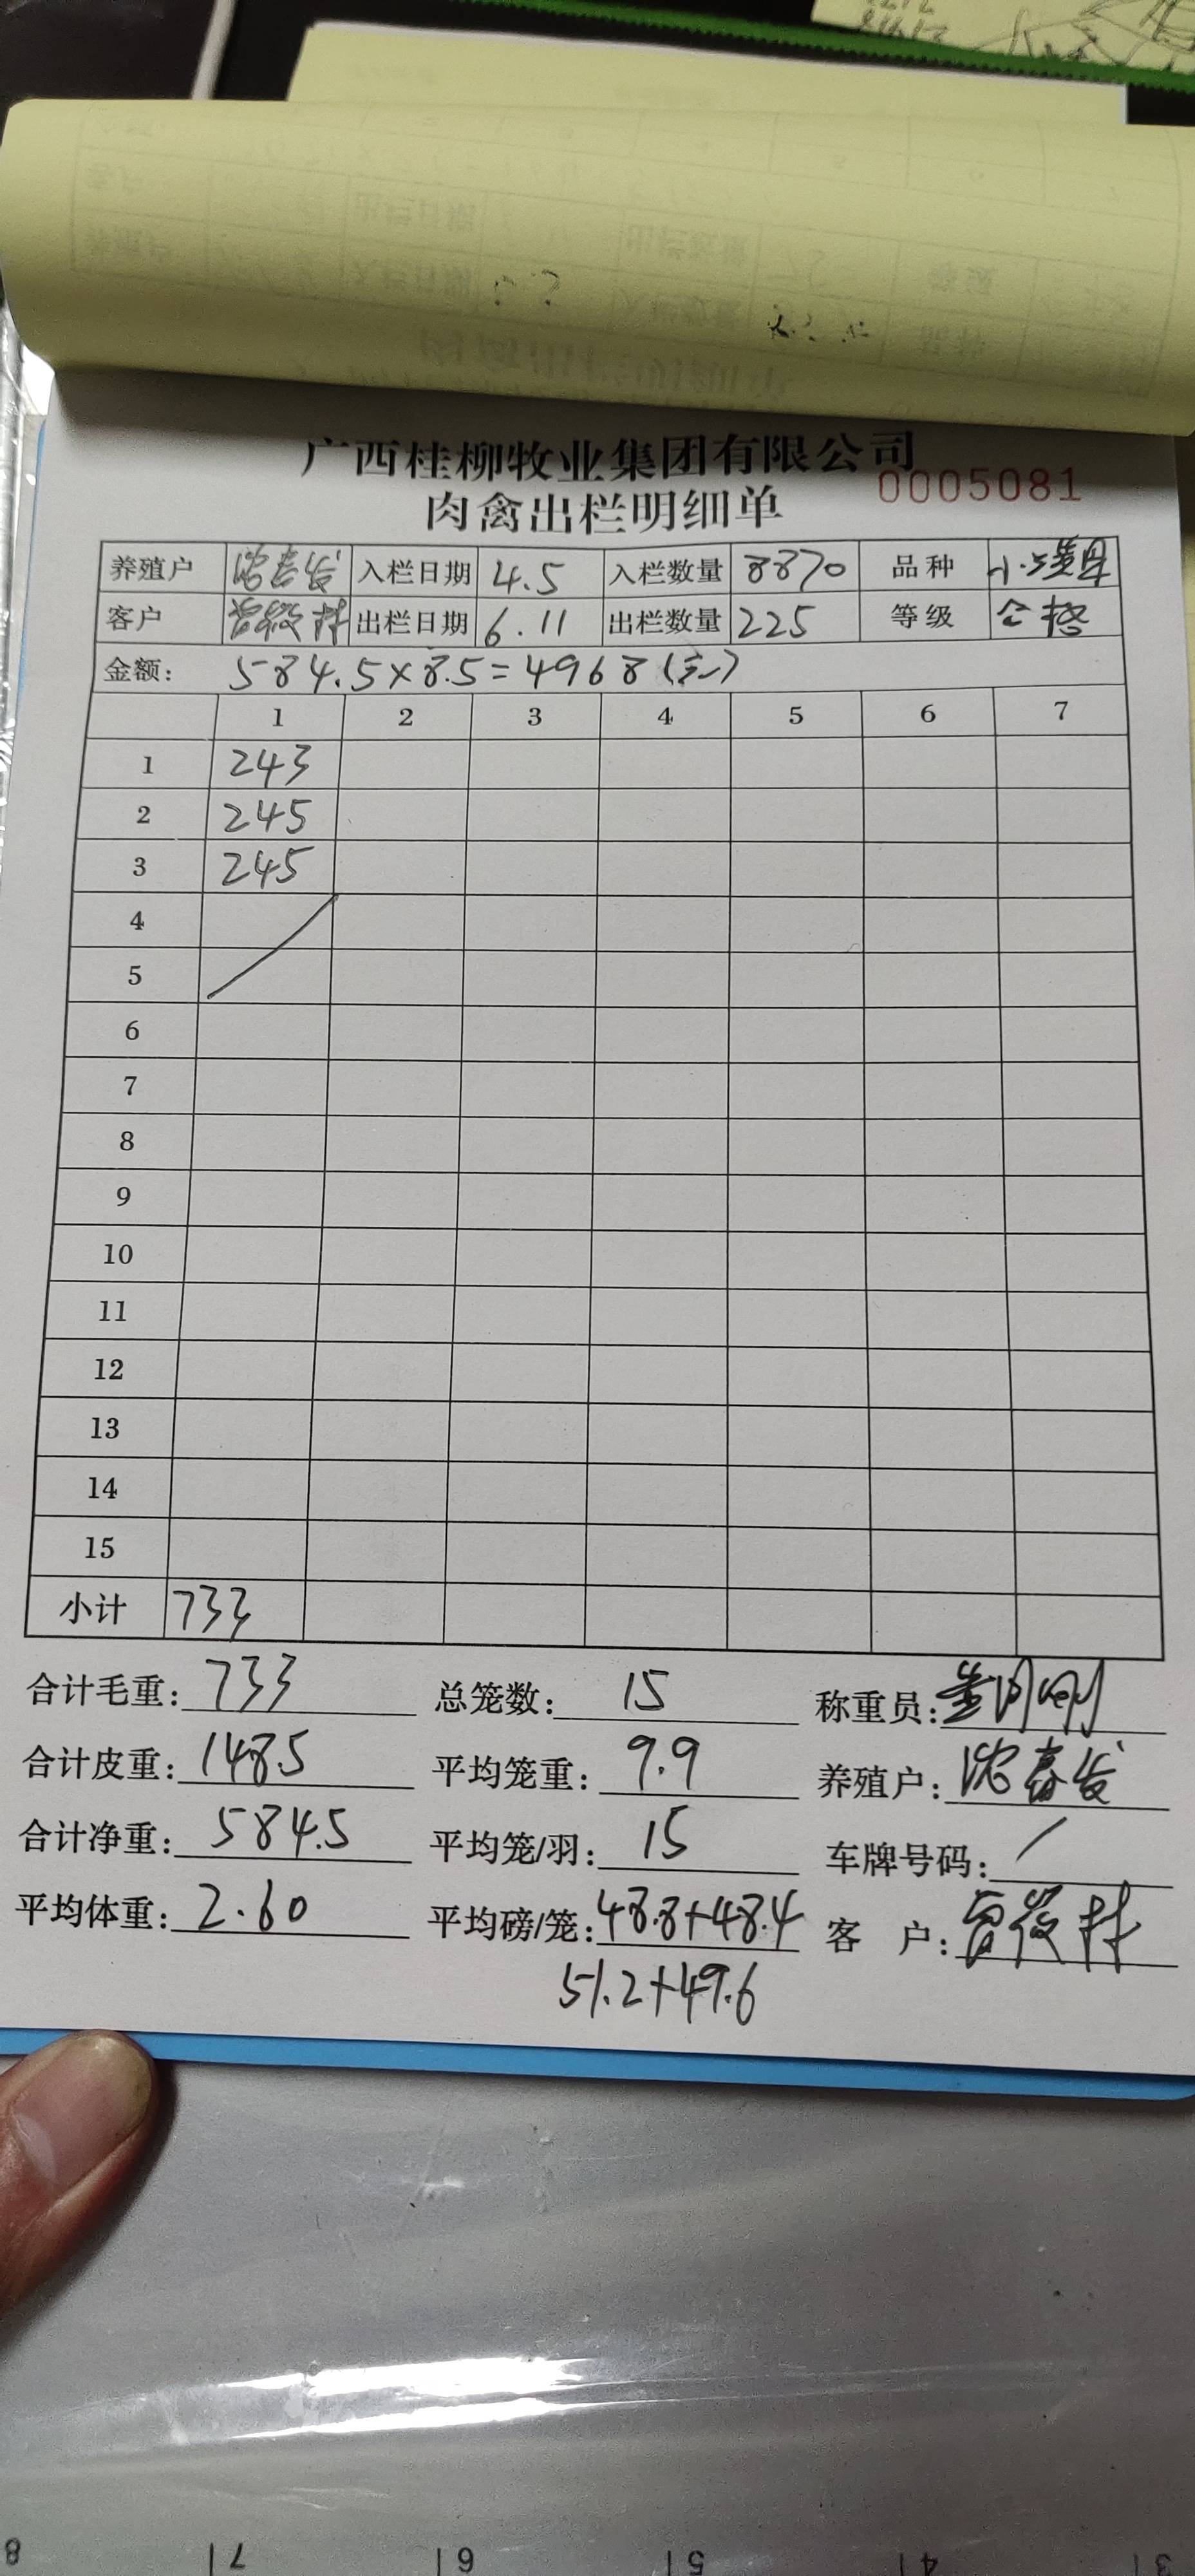 广西桂柳牧业集团有限公司
0005081
肉禽出栏明细单
养殖户 入栏日期 4.5 入栏数量 8870 品种
客户 出栏日期 6.11 出栏数量 225 等级 合格
金额: 584.5×8.5=4968(元)
1 2 3 4 5 6 7
1 243
2 245
3 245
4
5
6
7
8
9
10
11
12
13
14
15
小计 733
合计毛重: 733 总笼数: 15 称重员:
合计皮重: 148.5 平均笼重: 9.9 养殖户:
合计净重: 584.5 平均笼/羽: 15 车牌号码: /
平均体重: 2.60 平均磅/笼: 48.8+48.4 客 户:
51.2+49.6
8 71 61 51 41 31